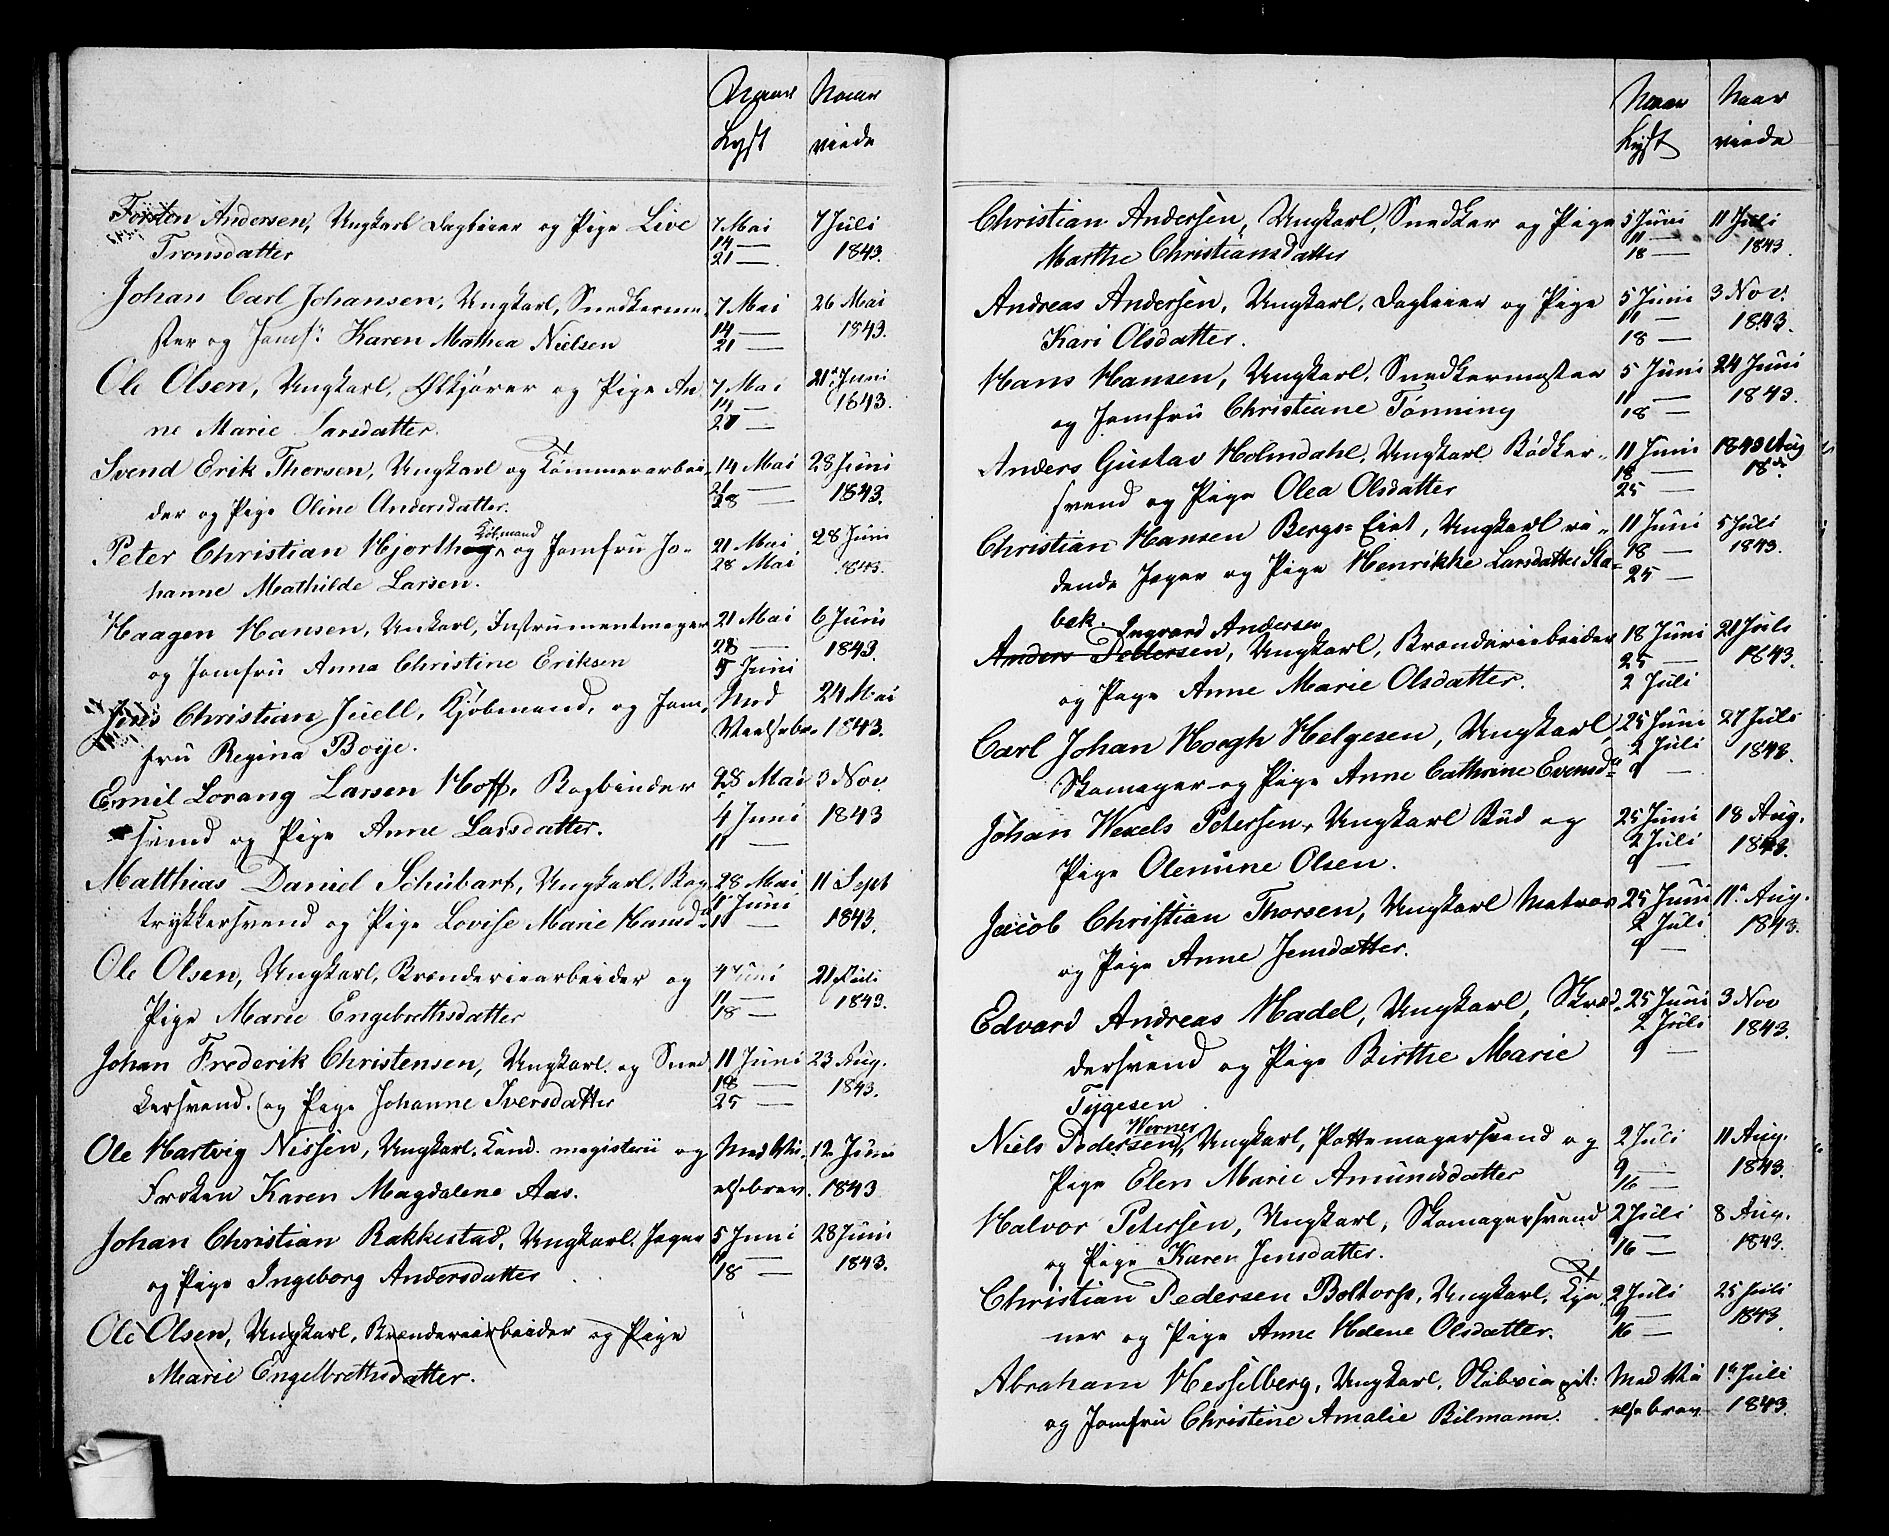 Naar Naar
Lyst viede
Torsten Andersen, Ungkarl Dagleier og Pige Live 7 Mai 7 Juli
Tronsdatter 14 — 1843.
21 —
Johan Carl Johansen, Ungkarl, Snedkerme- 7 Mai 26 Mai
ster og Jomf: Karen Mathea Nielsen 14 — 1843.
21 —
Ole Olsen, Ungkarl, Ølkjører og Pige An- 7 Mai 21 Juni
ne Marie Larsdatter. 14 — 1843.
21 —
Svend Erik Thorsen, Ungkarl og Tømmerarbei- 14 Mai 28 Juni
der og Pige Oline Andersdatter. 21 — 1843.
28 —
Kjøbmand
Peter Christian Hjorthøg og Jomfru Jo- 21 Mai 28 Juni
hanne Mathilde Larsen. 28 Mai 1843.
Haagen Hansen, Unkarl, Instrumentmager 21 Mai 6 Juni
og Jomfru Anna Christine Eriksen 28 — 1843.
5 Juni
Jens Christian Juell, Kjøbmand, og Jom- Med 24 Mai
fru Regina Boye. Vielsebr. 1843.
Emil Lorang Larsen Hoff, Bogbinder 28 Mai 3 Nov.
svend og Pige Anne Larsdatter. 4 Juni 1843
11 —
Matthias Daniel Schubart, Ungkarl, Bog- 28 Mai 11 Sept
trykkersvend og Pige Lovise Marie Hansd. 4 Juni 1843.
11 —
Ole Olsen, Ungkarl, Brænderiearbeider og 4 Juni 21 Juli
Pige Marie Engebrethsdatter 11 — 1843.
18 —
Johan Frederik Christensen, Ungkarl og Sned- 11 Juni 23 Aug.
kersvend. (og Pige Johanne Iversdatter 18 — 1843.
25 —
Ole Hartvig Nissen, Ungkarl, Cand. magisterii og Med Vi- 12 Juni
Frøken Karen Magdalene Aas. elsebrev. 1843
Johan Christian Rakkestad, Ungkarl, Jæger 5 Juni 28 Juni
og Pige Ingeborg Andersdatter 11 — 1843.
18 —
Ole Olsen, Ungkarl, Brænderiearbeider og Pige
Marie Engelbrethsdatter.
Naar Naar
Lyst viede
Christian Andersen, Ungkarl, Snedker og Pige 5 Juni 11 Juli
Marthe Christiansdatter 11 — 1843.
18 —
Andreas Andersen, Ungkarl, Dagleier og Pige 5 Juni 3 Nov.
Kari Olsdatter. 11 — 1843.
18 —
Hans Hansen, Ungkarl, Snedkermester 5 Juni 24 Juni
og Jomfru Christiane Tønning 11 — 1843.
18 —
Anders Gustav Holmdahl, Ungkarl Bødker- 11 Juni 1843 Aug
svend og Pige Olea Olsdatter 18 — 18de
25 —
Christian Hansen Bergs-Eiet, Ungkarl ri- 11 Juni 5 Juli
dende Jæger og Pige Henrikke Larsdatter Sta- 18 — 1843.
bæk. 25 —
Ingvard Andersen
Anders Pettersen, Ungkarl, Brænderiarbeider 18 Juni 21 Juli
og Pige Anne Marie Olsdatter. 25 — 1843.
2 Juli
Carl Johan Hoegh Helgesen, Ungkarl, 25 Juni 27 Juli
Skomager og Pige Anne Cathrine Evensd. 2 Juli 1843.
9 —
Johan Wexels Petersen, Ungkarl Bud og 25 Juni 18 Aug.
Pige Olemine Olsen. 2 Juli 1843.
9 —
Jacob Christian Thorsen, Ungkarl Matros 25 Juni 11 Aug.
og Pige Anne Jensdatter. 2 Juli 1843.
9 —
Edvard Andreas Madel, Ungkarl, Skræd- 25 Juni 3 Nov
dersvend og Pige Birthe Marie 2 Juli 1843.
Tygesen 9 —
Werner
Niels Pedersen, Ungkarl, Pottemagersvend og 2 Juli 11 Aug.
Pige Elen Marie Amundsdatter 9 — 1843.
16 —
Halvor Petersen, Ungkarl, Skomagersvend 2 Juli 8 Aug.
og Pige Karen Jensdatter. 9 1843.
16 —
Christian Pedersen Boltorp, Ungkarl, Tje- 2 Juli 25 Juli
ner og Pige Anne Helene Olsdatter. 9 — 1843.
16 —
Abraham Hesselberg, Ungkarl, Skibscapit: Med Vi 1 Juli
og Jomfru Christine Amalie Bilmann. elsebrev 1843.